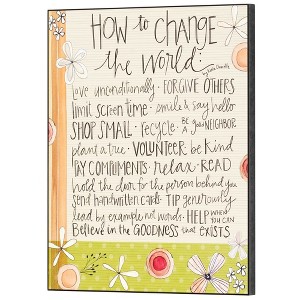 HOW to CHANGE
the WORLD:
love unconditionally · FORGIVE OTHERS
limit screen time · smile & say hello
SHOP SMALL · recycle · BE A good NEIGHBOR
plant a tree · VOLUNTEER · be kind
PAY COMPLIMENTS · relax · READ
hold the door for the person behind you
send handwritten cards · TIP generously
lead by example not words · HELP WHEN YOU CAN
Believe in the GOODNESS that EXISTS